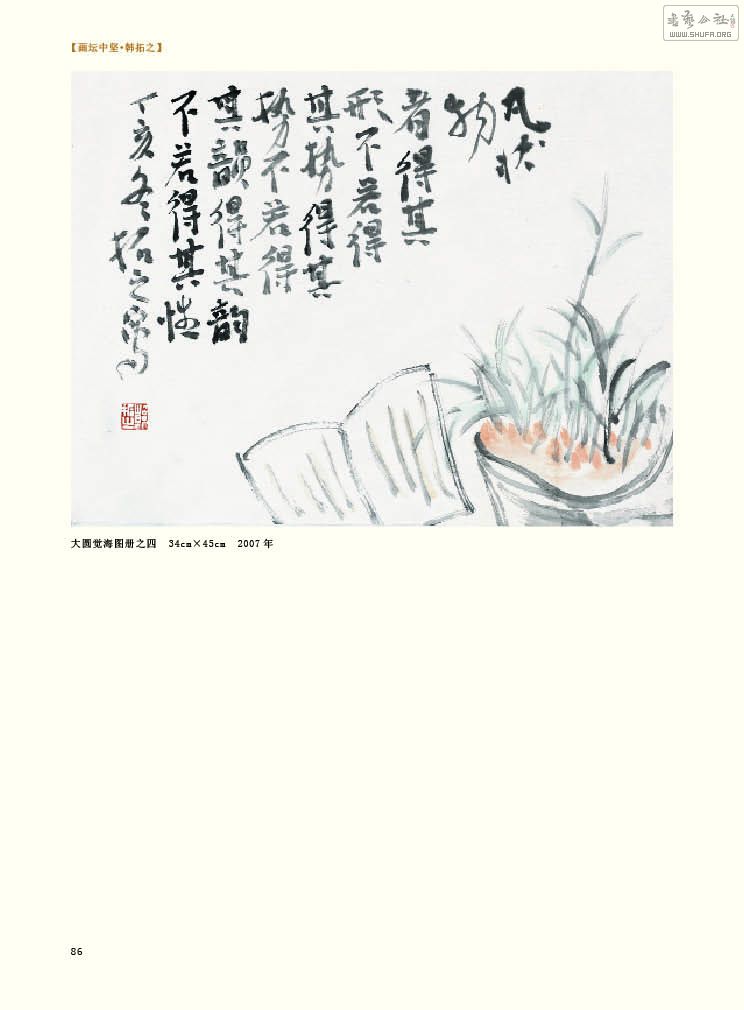 书艺公社
WWW.SHUFA.ORG
【画坛中坚·韩拓之】
凡状
物
者得其
形不若得
其势得其
势不若得
其韻得其韵
不若得其性
丁亥冬拓之写
大圆觉海图册之四 34cm×45cm 2007年
86